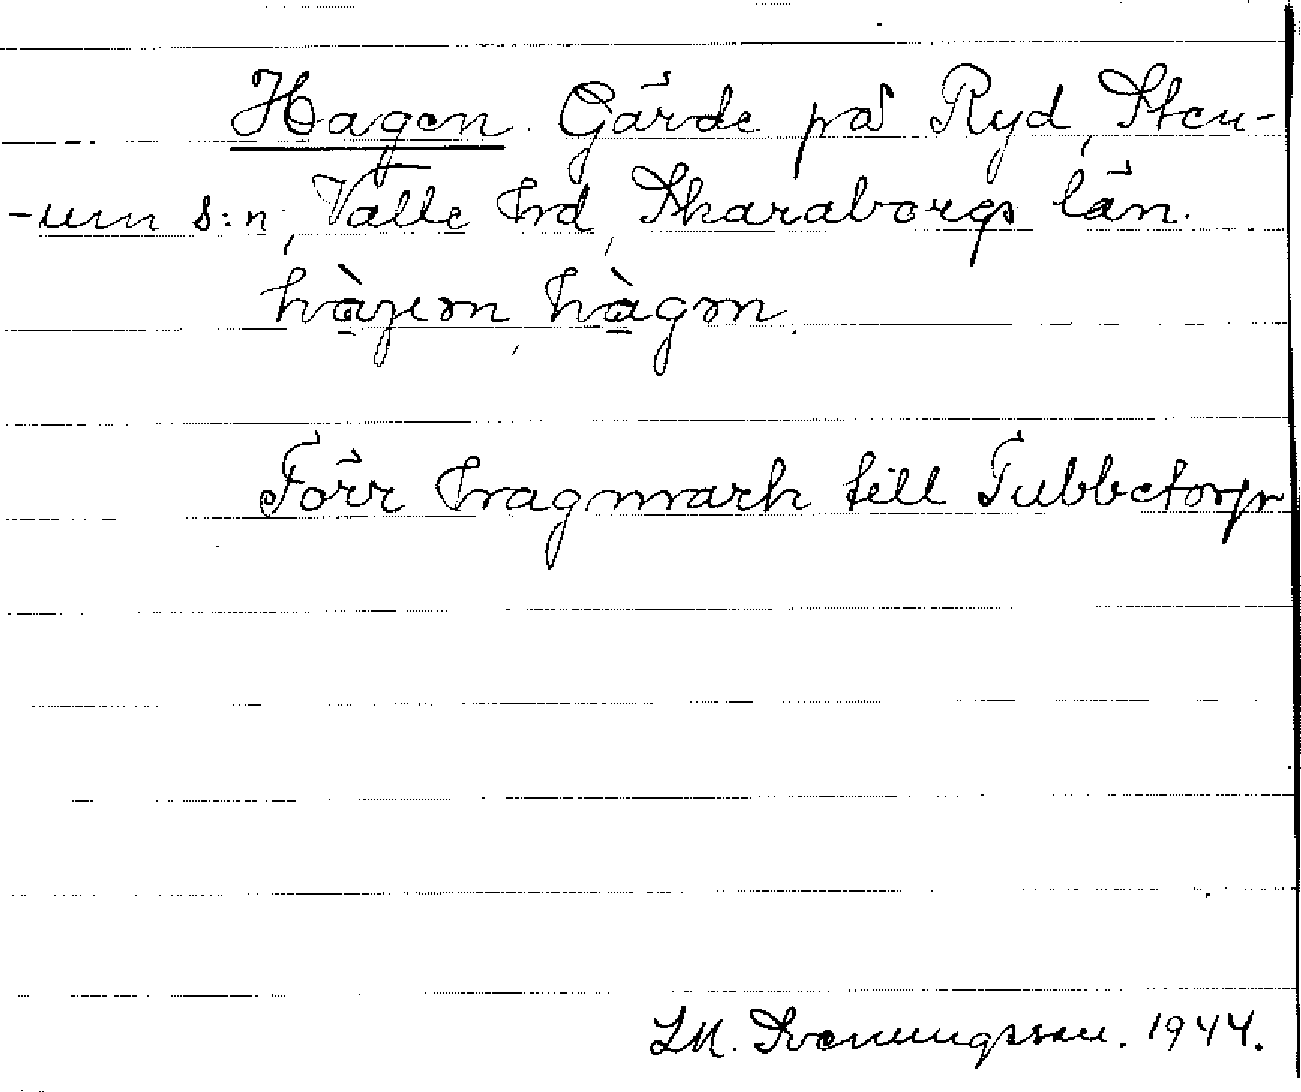 Hagen. Gärde på Ryd, Sten-
-um s:n, Valle hd, Skaraborgs län.
hàgen, hàgm.
Förr hagmark till Tubbetorp
Svenungsson. 1944.